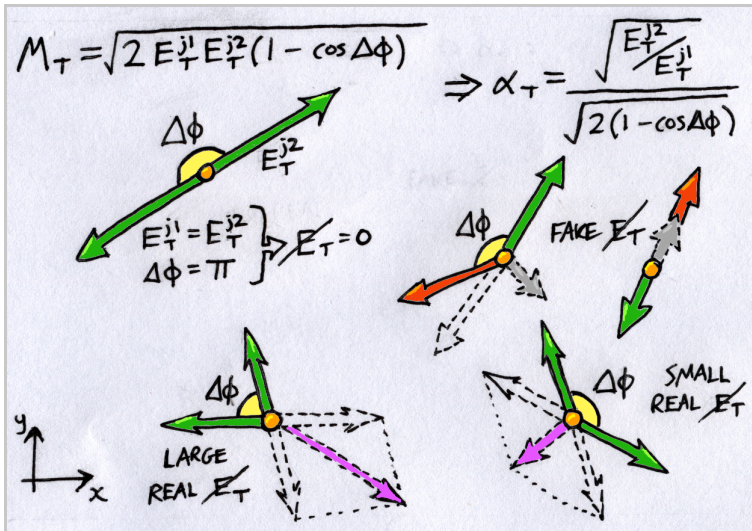 M_T = √(2 E_T^j1 E_T^j2 (1 - cos Δϕ))
⇒ α_T = √(E_T^j2 / E_T^j1) / √(2(1 - cosΔϕ))
Δϕ
E_T^j2
E_T^j1 = E_T^j2
Δϕ = π
} ⇒ E̸_T = 0
Δϕ
FAKE E̸_T
Δϕ
LARGE
REAL E̸_T
Δϕ
SMALL
REAL E̸_T
y
x